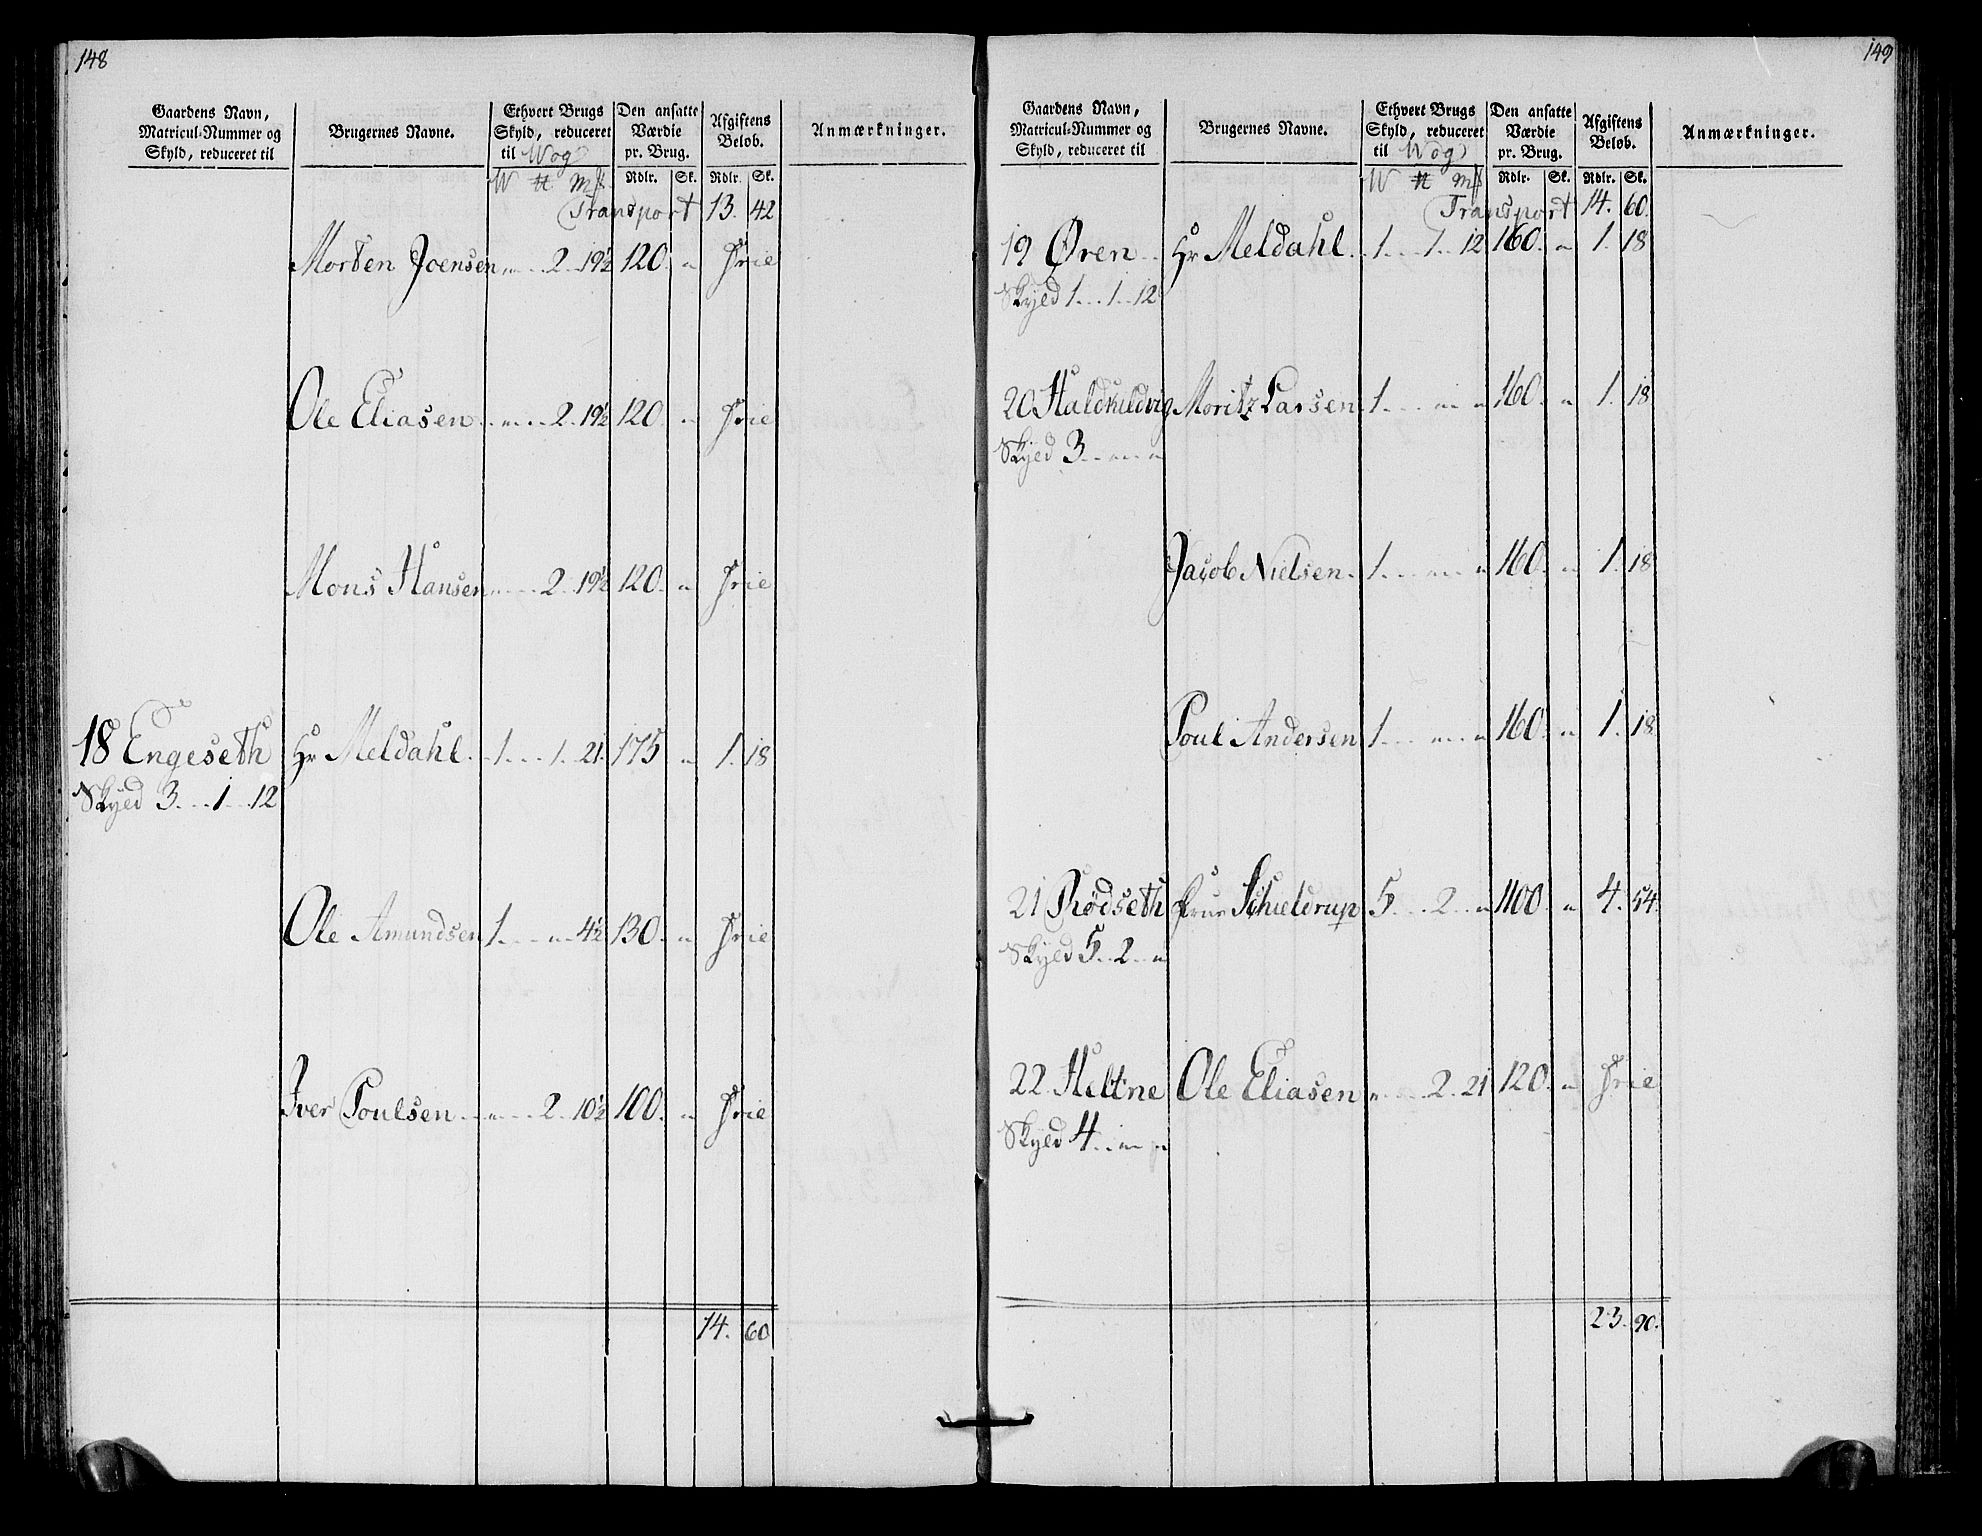 148
Gaardens Navn, Matricul-Nummer og Skyld, reduceret til
Brugernes Navne.
Ethvert Brugs Skyld, reduceret til Wog
Den ansatte Værdie pr. Brug.
Afgiftens Beløb.
Anmærkninger.
W ℔ Mk Rdlr. Sk. Rdlr. Sk.
Transport 13. 42
Morten Joensen „ 2 19½ 120 „ Frie
Ole Eliasen „ 2 19½ 120 „ Frie
Mons Hansen „ 2 19½ 120 „ Frie
18 Engeseth Hr Meldahl 1 1 21 175 „ 1. 18
Skyld 3 1 12
Ole Amundsen 1 „ 4½ 130 „ Frie
Iver Poulsen „ 2 10½ 100 „ Frie
14. 60
149
Gaardens Navn, Matricul-Nummer og Skyld, reduceret til
Brugernes Navne.
Ethvert Brugs Skyld, reduceret til Wog
Den ansatte Værdie pr. Brug.
Afgiftens Beløb.
Anmærkninger.
W ℔ Mk Rdlr. Sk. Rdlr. Sk.
Transport 14. 60.
19 Øren Hr Meldahl 1 1 12 160 „ 1. 18
Skyld 1 1 12
20 Haldkuldvig Moritz Larsen 1 „ „ 160 „ 1. 18
Skyld 3 „ „
Jacob Nielsen 1 „ „ 160 „ 1. 18
Poul Andersen 1 „ „ 160 „ 1. 18
21 Rødseth Frue Schieldrup 5 2 „ 1100 „ 4. 54.
Skyld 5 2 „
22 Heltne Ole Eliasen „ 2 21 120 „ Frie
Skyld 4 „ „
23. 90.